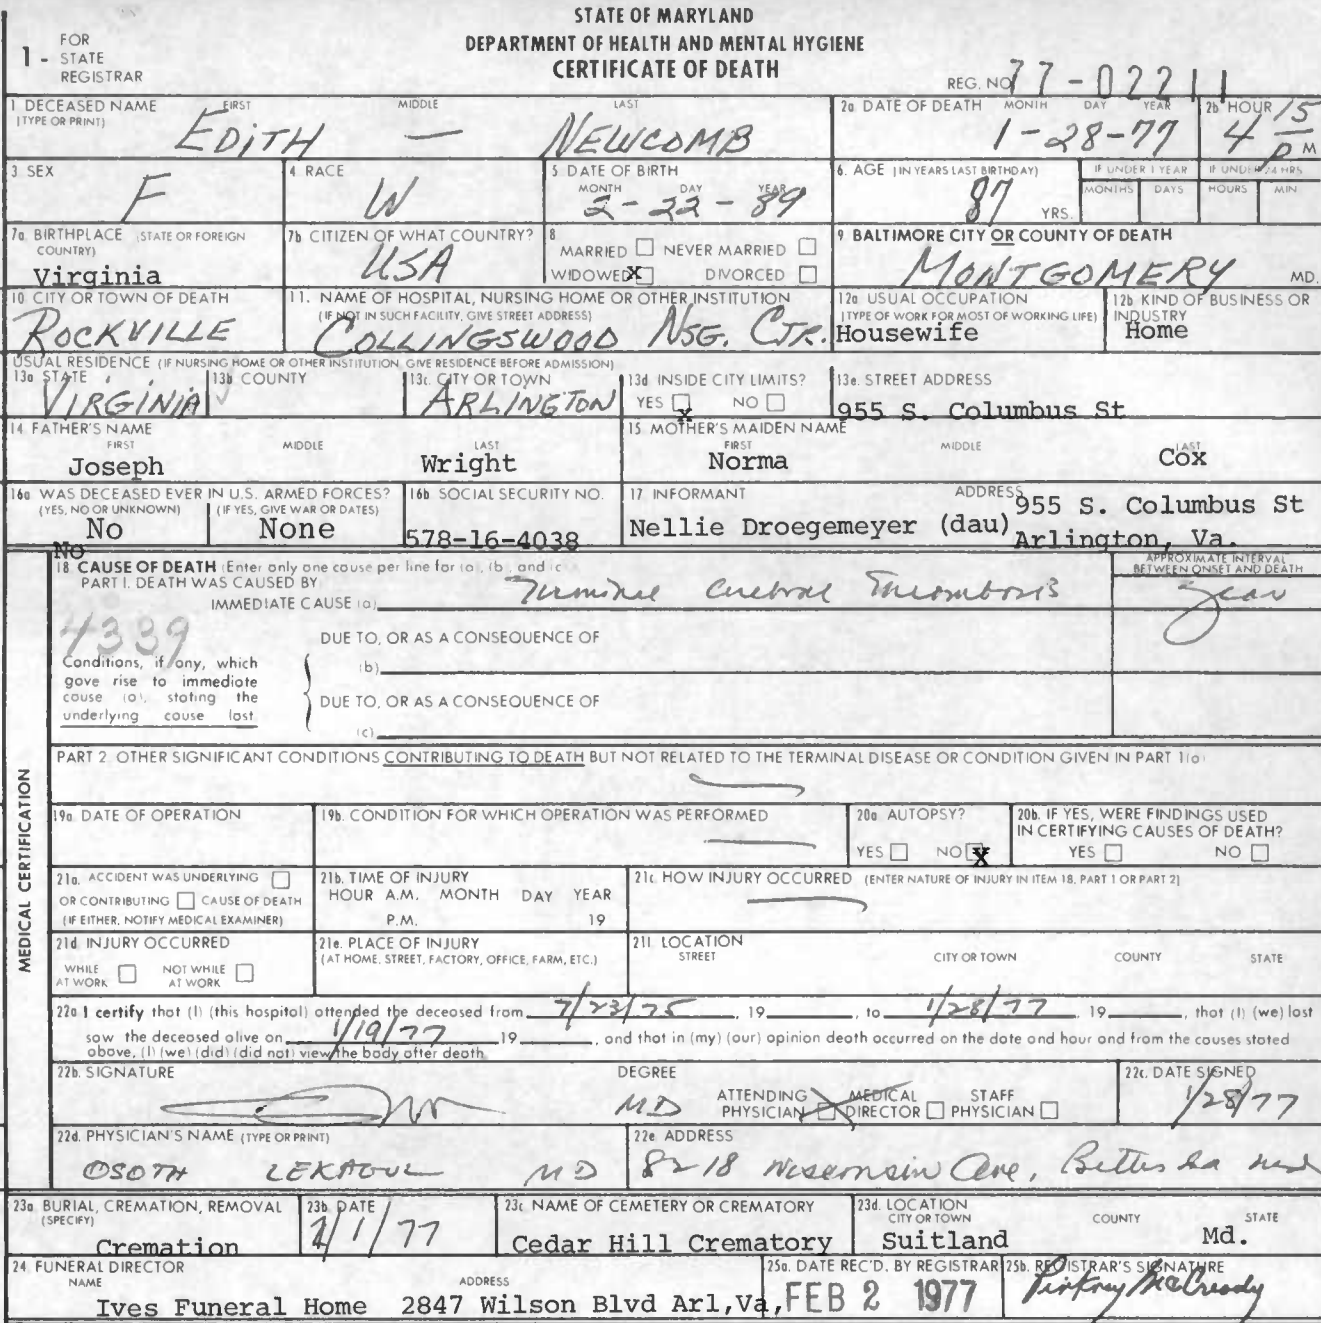 STATE OF MARYLAND
DEPARTMENT OF HEALTH AND MENTAL HYGIENE
CERTIFICATE OF DEATH
1 - FOR STATE REGISTRAR
REG. NO 77-02211
1 DECEASED NAME (TYPE OR PRINT) FIRST MIDDLE LAST
EDITH — NEWCOMB
2a DATE OF DEATH MONTH DAY YEAR
1-28-77
2b HOUR
4 15 P M
3 SEX
F
4 RACE
W
5 DATE OF BIRTH MONTH DAY YEAR
2-22-89
6. AGE (IN YEARS LAST BIRTHDAY)
87 YRS.
IF UNDER 1 YEAR MONTHS DAYS
IF UNDER 24 HRS HOURS MIN
7a BIRTHPLACE (STATE OR FOREIGN COUNTRY)
Virginia
7b CITIZEN OF WHAT COUNTRY?
USA
8 MARRIED NEVER MARRIED
WIDOWED X DIVORCED
9 BALTIMORE CITY OR COUNTY OF DEATH
MONTGOMERY MD.
10 CITY OR TOWN OF DEATH
ROCKVILLE
11. NAME OF HOSPITAL, NURSING HOME OR OTHER INSTITUTION
(IF NOT IN SUCH FACILITY, GIVE STREET ADDRESS)
COLLINGSWOOD NSG. CTR.
12a USUAL OCCUPATION
(TYPE OF WORK FOR MOST OF WORKING LIFE)
Housewife
12b KIND OF BUSINESS OR INDUSTRY
Home
USUAL RESIDENCE (IF NURSING HOME OR OTHER INSTITUTION GIVE RESIDENCE BEFORE ADMISSION)
13a STATE
VIRGINIA
13b COUNTY
13c. CITY OR TOWN
ARLINGTON
13d INSIDE CITY LIMITS?
YES X NO
13e. STREET ADDRESS
955 S. Columbus St
14 FATHER'S NAME FIRST MIDDLE LAST
Joseph Wright
15 MOTHER'S MAIDEN NAME FIRST MIDDLE LAST
Norma Cox
16a WAS DECEASED EVER IN U.S. ARMED FORCES?
(YES, NO OR UNKNOWN) (IF YES, GIVE WAR OR DATES)
No None
16b SOCIAL SECURITY NO.
578-16-4038
17 INFORMANT ADDRESS
Nellie Droegemeyer (dau) 955 S. Columbus St
Arlington, Va.
No
18 CAUSE OF DEATH (Enter only one cause per line for (a), (b), and (c)
PART I. DEATH WAS CAUSED BY
IMMEDIATE CAUSE (a) Cerebral Thrombosis
APPROXIMATE INTERVAL BETWEEN ONSET AND DEATH
year
4339
DUE TO, OR AS A CONSEQUENCE OF
(b)
DUE TO, OR AS A CONSEQUENCE OF
(c)
Conditions, if any, which
gave rise to immediate
cause (a), stating the
underlying cause last
MEDICAL CERTIFICATION
PART 2 OTHER SIGNIFICANT CONDITIONS CONTRIBUTING TO DEATH BUT NOT RELATED TO THE TERMINAL DISEASE OR CONDITION GIVEN IN PART 1(a)
19a DATE OF OPERATION
19b. CONDITION FOR WHICH OPERATION WAS PERFORMED
20a AUTOPSY?
YES NO X
20b. IF YES, WERE FINDINGS USED
IN CERTIFYING CAUSES OF DEATH?
YES NO
21a. ACCIDENT WAS UNDERLYING
OR CONTRIBUTING CAUSE OF DEATH
(IF EITHER, NOTIFY MEDICAL EXAMINER)
21b. TIME OF INJURY
HOUR A.M. MONTH DAY YEAR
P.M. 19
21c HOW INJURY OCCURRED (ENTER NATURE OF INJURY IN ITEM 18, PART 1 OR PART 2)
21d INJURY OCCURRED
WHILE AT WORK NOT WHILE AT WORK
21e. PLACE OF INJURY
(AT HOME, STREET, FACTORY, OFFICE, FARM, ETC.)
21f LOCATION
STREET CITY OR TOWN COUNTY STATE
22a I certify that (I) (this hospital) attended the deceased from 7/23/75, 19 , to 1/28/77 19 , that (I) (we) last
saw the deceased alive on 1/19/77 19 , and that in (my) (our) opinion death occurred on the date and hour and from the causes stated
above, (I) (we) (did) (did not) view the body after death
22b. SIGNATURE
DEGREE
MD
ATTENDING PHYSICIAN MEDICAL DIRECTOR STAFF PHYSICIAN
22c. DATE SIGNED
1/28/77
22d. PHYSICIAN'S NAME (TYPE OR PRINT)
OSOTH LEKAGUL MD
22e ADDRESS
8218 Wisconsin Ave,
23a BURIAL, CREMATION, REMOVAL (SPECIFY)
Cremation
23b DATE
2/1/77
23c NAME OF CEMETERY OR CREMATORY
Cedar Hill Crematory
23d. LOCATION CITY OR TOWN COUNTY STATE
Suitland Md.
24 FUNERAL DIRECTOR NAME ADDRESS
Ives Funeral Home 2847 Wilson Blvd Arl,Va,
25a. DATE REC'D. BY REGISTRAR
FEB 2 1977
25b. REGISTRAR'S SIGNATURE